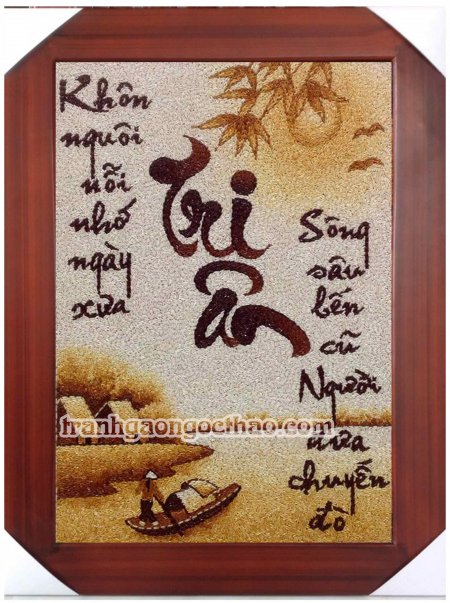 Khôn
nguôi
nỗi
nhớ
ngày
xưa
Tri
ân
Sông
sâu
bến
cũ
Người
xưa
chuyến
đò
tranhgaongocthao.com